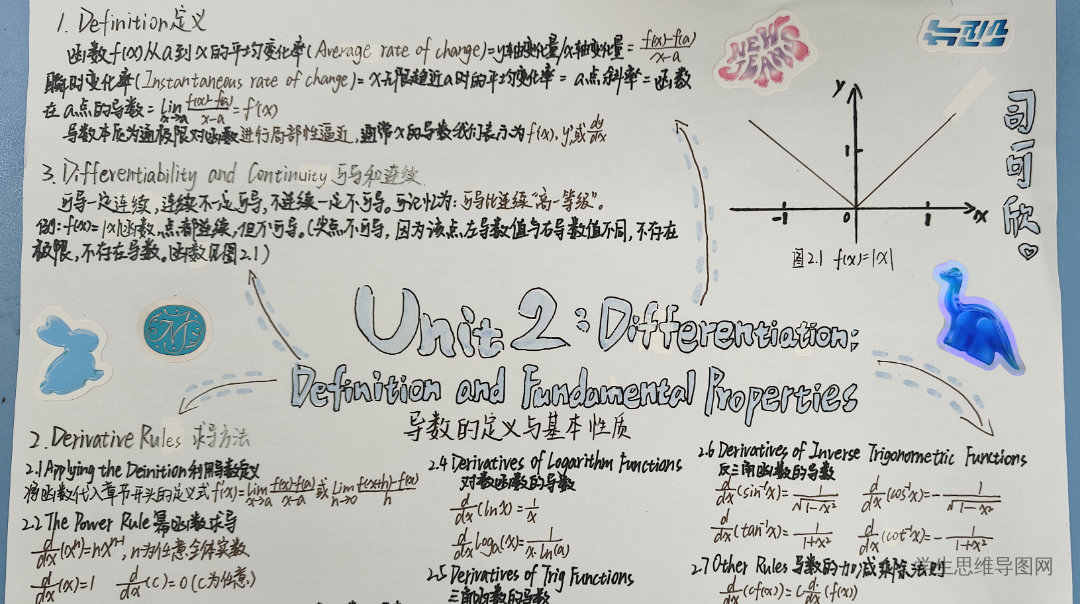 1. Definition 定义
函数f(x)从a到x的平均变化率(Average rate of change)=y轴变化量/x轴变化量= f(x)-f(a)/x-a
瞬时变化率(Instantaneous rate of change)=x无限趋近a时的平均变化率=a点斜率=函数
在a点的导数=lim x→a f(x)-f(a)/x-a =f'(x)
导数本质为通过极限对函数进行局部性逼近,通常x的导数我们表示为f'(x).y'或dy/dx
3. Differentiability and Continuity 可导和连续
可导一定连续,连续不一定可导,不连续一定不可导。可记忆为:可导比连续"高一等级"。
例:f(x)=|x|函数,点都连续,但不可导。(尖点不可导,因为该点左导数值与右导数值不同,不存在
极限,不存在导数。函数见图2.1)
NEW
JEANS
뉴진스
y
1
-1
0
1
x
图2.1 f(x)=|x|
司可欣
Unit 2: Differentiation:
Definition and Fundamental Properties
导数的定义与基本性质
2. Derivative Rules 求导方法
2.1 Applying the Deinition 利用导数定义
将函数代入章节开头的定义式f'(x)=lim x→a f(x)-f(a)/x-a 或 lim h→0 f(x+h)-f(x)/h
2.2 The Power Rule 幂函数求导
d/dx(xⁿ)=nxⁿ⁻¹, n为任意全体实数
d/dx(x)=1 d/dx(c)=0(c为任意)
2.4 Derivatives of Logarithm Functions
对数函数的导数
d/dx(lnx)=1/x
d/dx logₐ(x)=1/x·ln(a)
2.5 Derivatives of Trig Functions
三角函数的导数
2.6 Derivatives of Inverse Trigonometric Functions
反三角函数的导数
d/dx(sin⁻¹x)=1/√1-x² d/dx(cos⁻¹x)=-1/√1-x²
d/dx(tan⁻¹x)=1/1+x² d/dx(cot⁻¹x)=-1/1+x²
2.7 Other Rules 导数的加减乘除法则
d/dx(cf(x))=c d/dx(f(x))
学生思维导图网